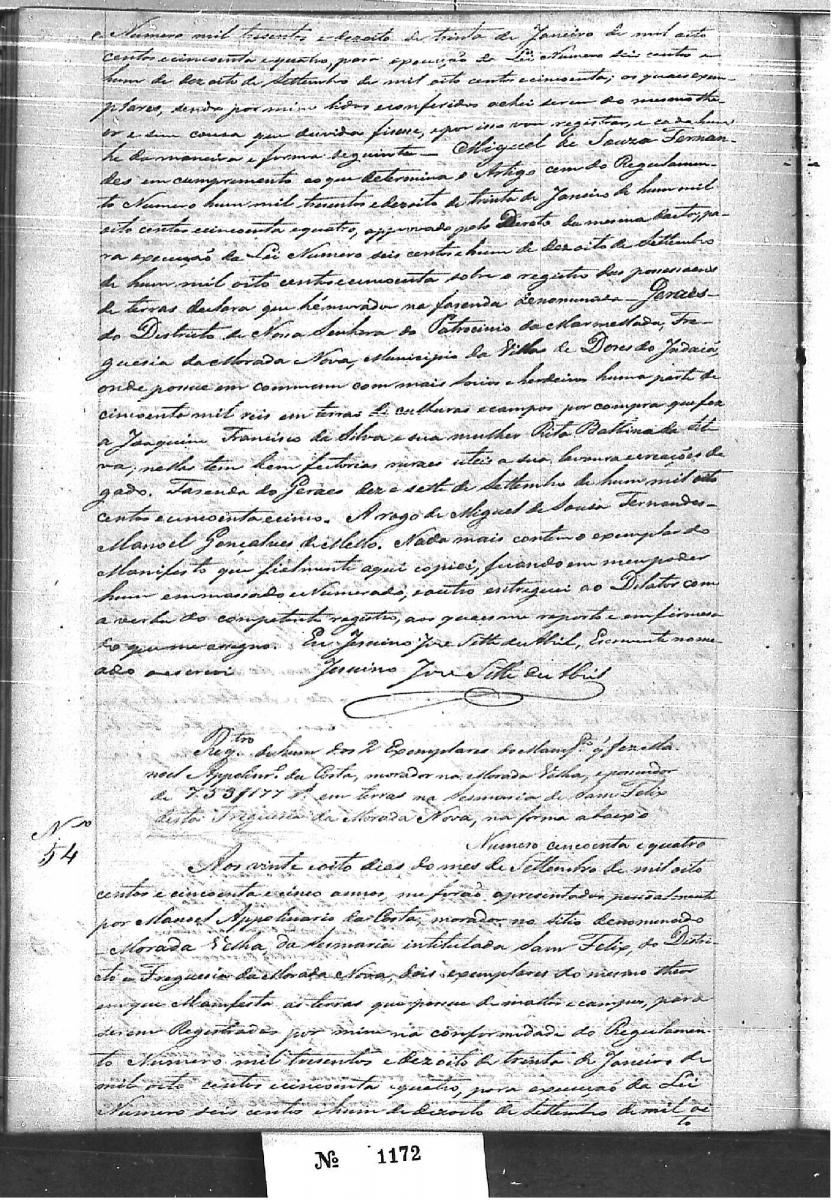 e Numero mil tresentos e dezoito de trinta de Janeiro de mil oito
centos e cincoenta e quatro, para execução da Lei Numero seis centos e
hum de dezoito de Settembro de mil oito centos e cincoenta; os quaes exem-
plares, sendo por mim lidos e conferidos achei serem do mesmo the-
or e sem cousa que duvida fisesse, e por isso vou registrar, e cada hum
he da maneira e forma seguinte — Miguel de Souza Fernan-
des em cumprimento ao que determina o Artigo cem do Regulamen-
to Numero hum mil tresentos e dezoito de trinta de Janeiro de hum mil
oito centos e cincoenta e quatro, approvado pelo Dereto da mesma dacta, pa-
ra execução da Lei Numero seis centos e hum de dezoito de Settembro
de hum mil oito centos e cincoenta sobre o registro das possessoens
de terras declara que hé morador na fasenda denominada — Geraes —
do Districto de Nossa Senhora do Patrocinio da Marmellada, Fre-
guesia da Morada Nova, Municipio da Villa de Dores do Indaiá,
onde possue em commum com mais socios e herdeiros huma parte de
cincoenta mil reis em terras de culturas e campos por compra que fez
a Joaquim Francisco da Silva e sua mulher Rita da Sil-
va, nellas tem bemfeitorias ruraes uteis a sua lavoura e creações de
gado. Fasenda do Geraes dez e sette de Settembro de hum mil oito
centos e cincoenta e cinco. A rogo de Miguel de Sousa Fernandes —
Manoel Gonçalves de Mello. Nada mais contem o exemplar do
Manifesto que fielmente aqui copiei, ficando em meu poder
hum emmassado e Numerado, e outro entreguei ao Dilator com
a verba do competente registro, aos quaes me reporto e em firmesa
do que me assigno. Eu Jesuino Jose Sette de Abril, Escrevente nome-
ado o escrevi Jesuino Jose Sette de Abril
Reg.tro de hum dos 2 Exemplares do Manif.to q' fez Ma-
noel Appolinr.o da Costa, morador na Morada Velha, e possuidor
de 753$177 r.s em terras na Sesmaria de Sam Felix
desta Freguesia da Morada Nova, na forma abaixo
N.o
54
Numero cincoenta e quatro
Aos vinte e oito dias do mes de Settembro de mil oito
centos e cincoenta e cinco annos, me forão apresentados pessoalmente
por Manoel Appolinario da Costa, morador no sitio denominado
— Morada Velha, da Sesmaria intitulada Sam Felix, do Distri-
cto e Freguesia da Morada Nova, dois exemplares do mesmo theor
em que Manifesta as terras que possue de mattos e campos, para
serem Registradas por mim na conformidade do Regulamen-
to Numero mil tresentos e dezoito de trinta de Janeiro de
mil oito centos e cincoenta e quatro, para execução da Lei
Numero seis centos e hum de dezoito de Settembro de mil oi
to
Nº 1172